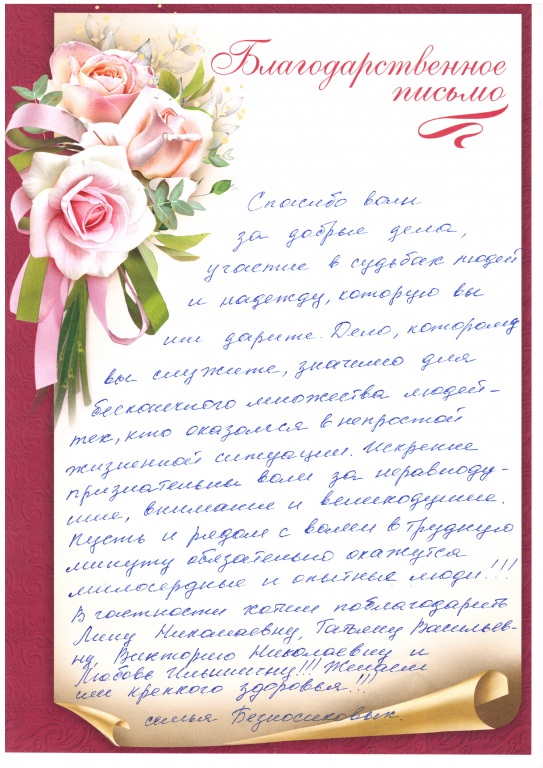 Благодарственное
письмо
Спасибо вам
за добрые дела,
участие в судьбах людей
и надежду, которую вы
им дарите. Дело, которому
вы служите, значимо для
бесконечного множества людей-
тех, кто оказался в непростой
жизненной ситуации. Искренне
признательны вам за неравноду-
шие, внимание и великодушие.
Пусть и рядом с вами в трудную
минуту обязательно окажутся
милосердные и опытные люди!!!
В частности хотим поблагодарить
Лину Николаевну, Татьяну Васильев-
ну, Викторию Николаевну и
Любовь Ильиничну!!! Желаем
им крепкого здоровья!!!
семья Безносиковых.